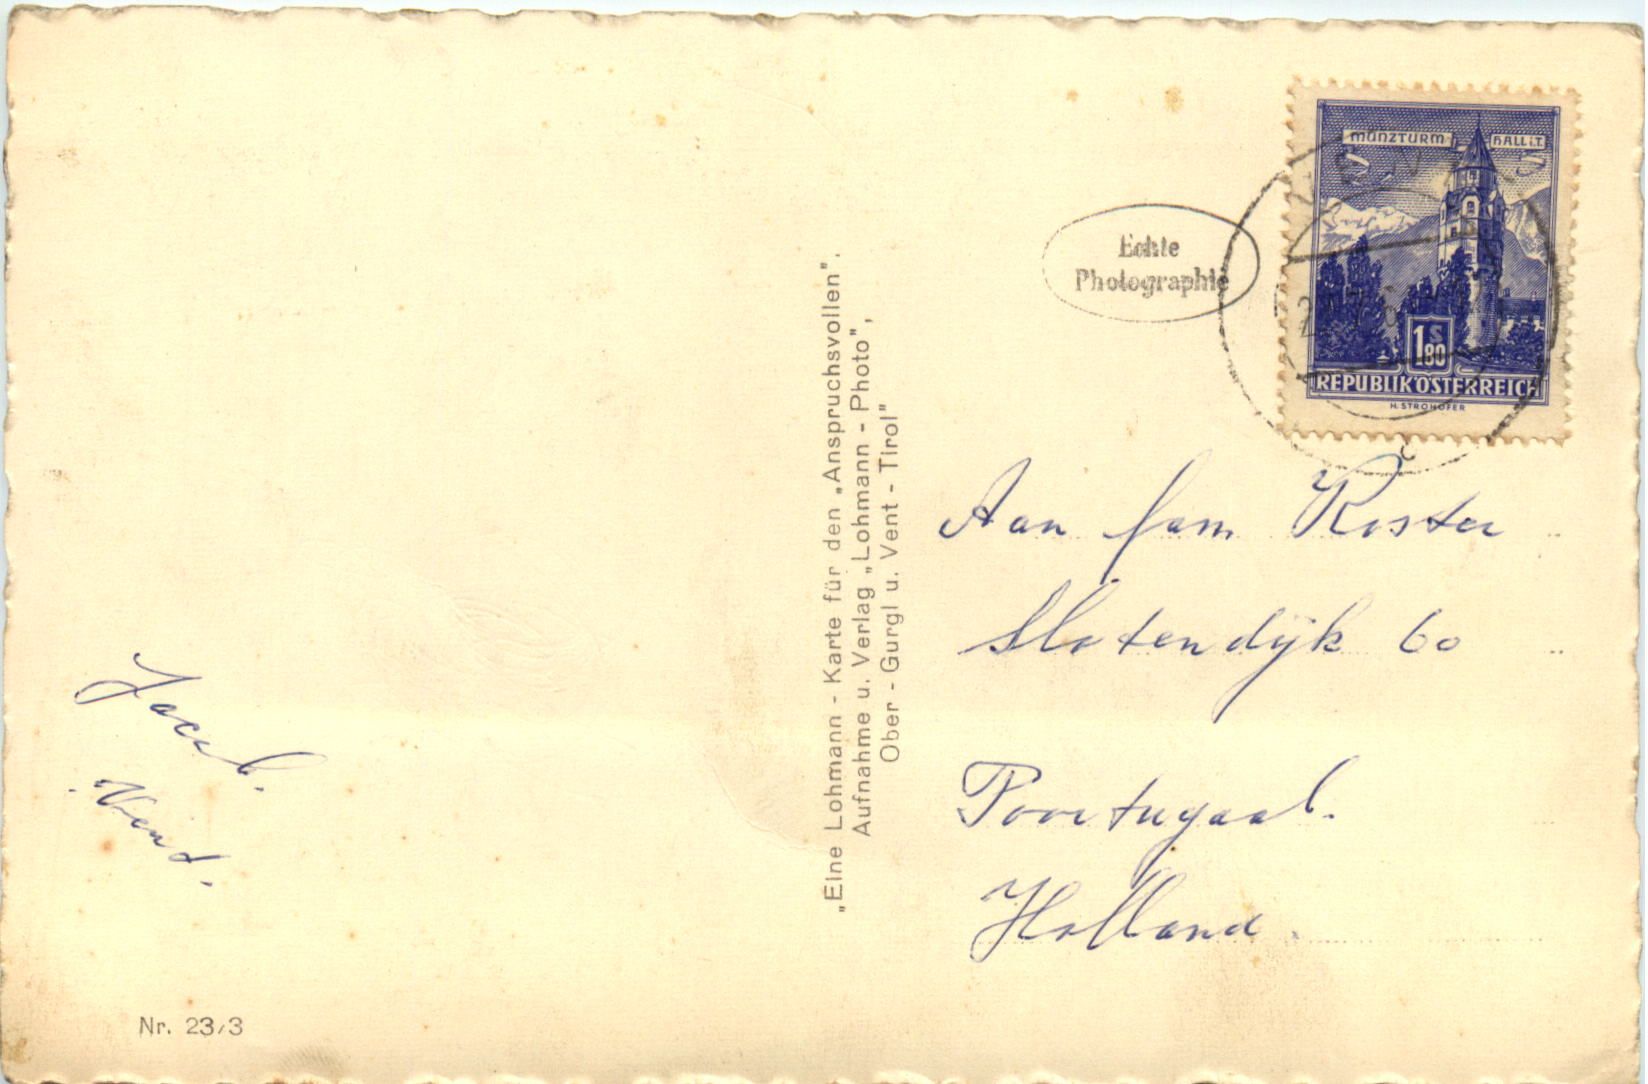 MÜNZTURM HALL i.T.
1 S 80
REPUBLIK ÖSTERREICH
H. STROHOFER
Echte
Photographie
„Eine Lohmann - Karte für den „Anspruchsvollen".
Aufnahme u. Verlag „Lohmann - Photo",
Ober - Gurgl u. Vent - Tirol"
Aan fam Koster
Slotendijk 60
Poortugaal.
Holland.
Jacob.
Vend.
Nr. 23/3